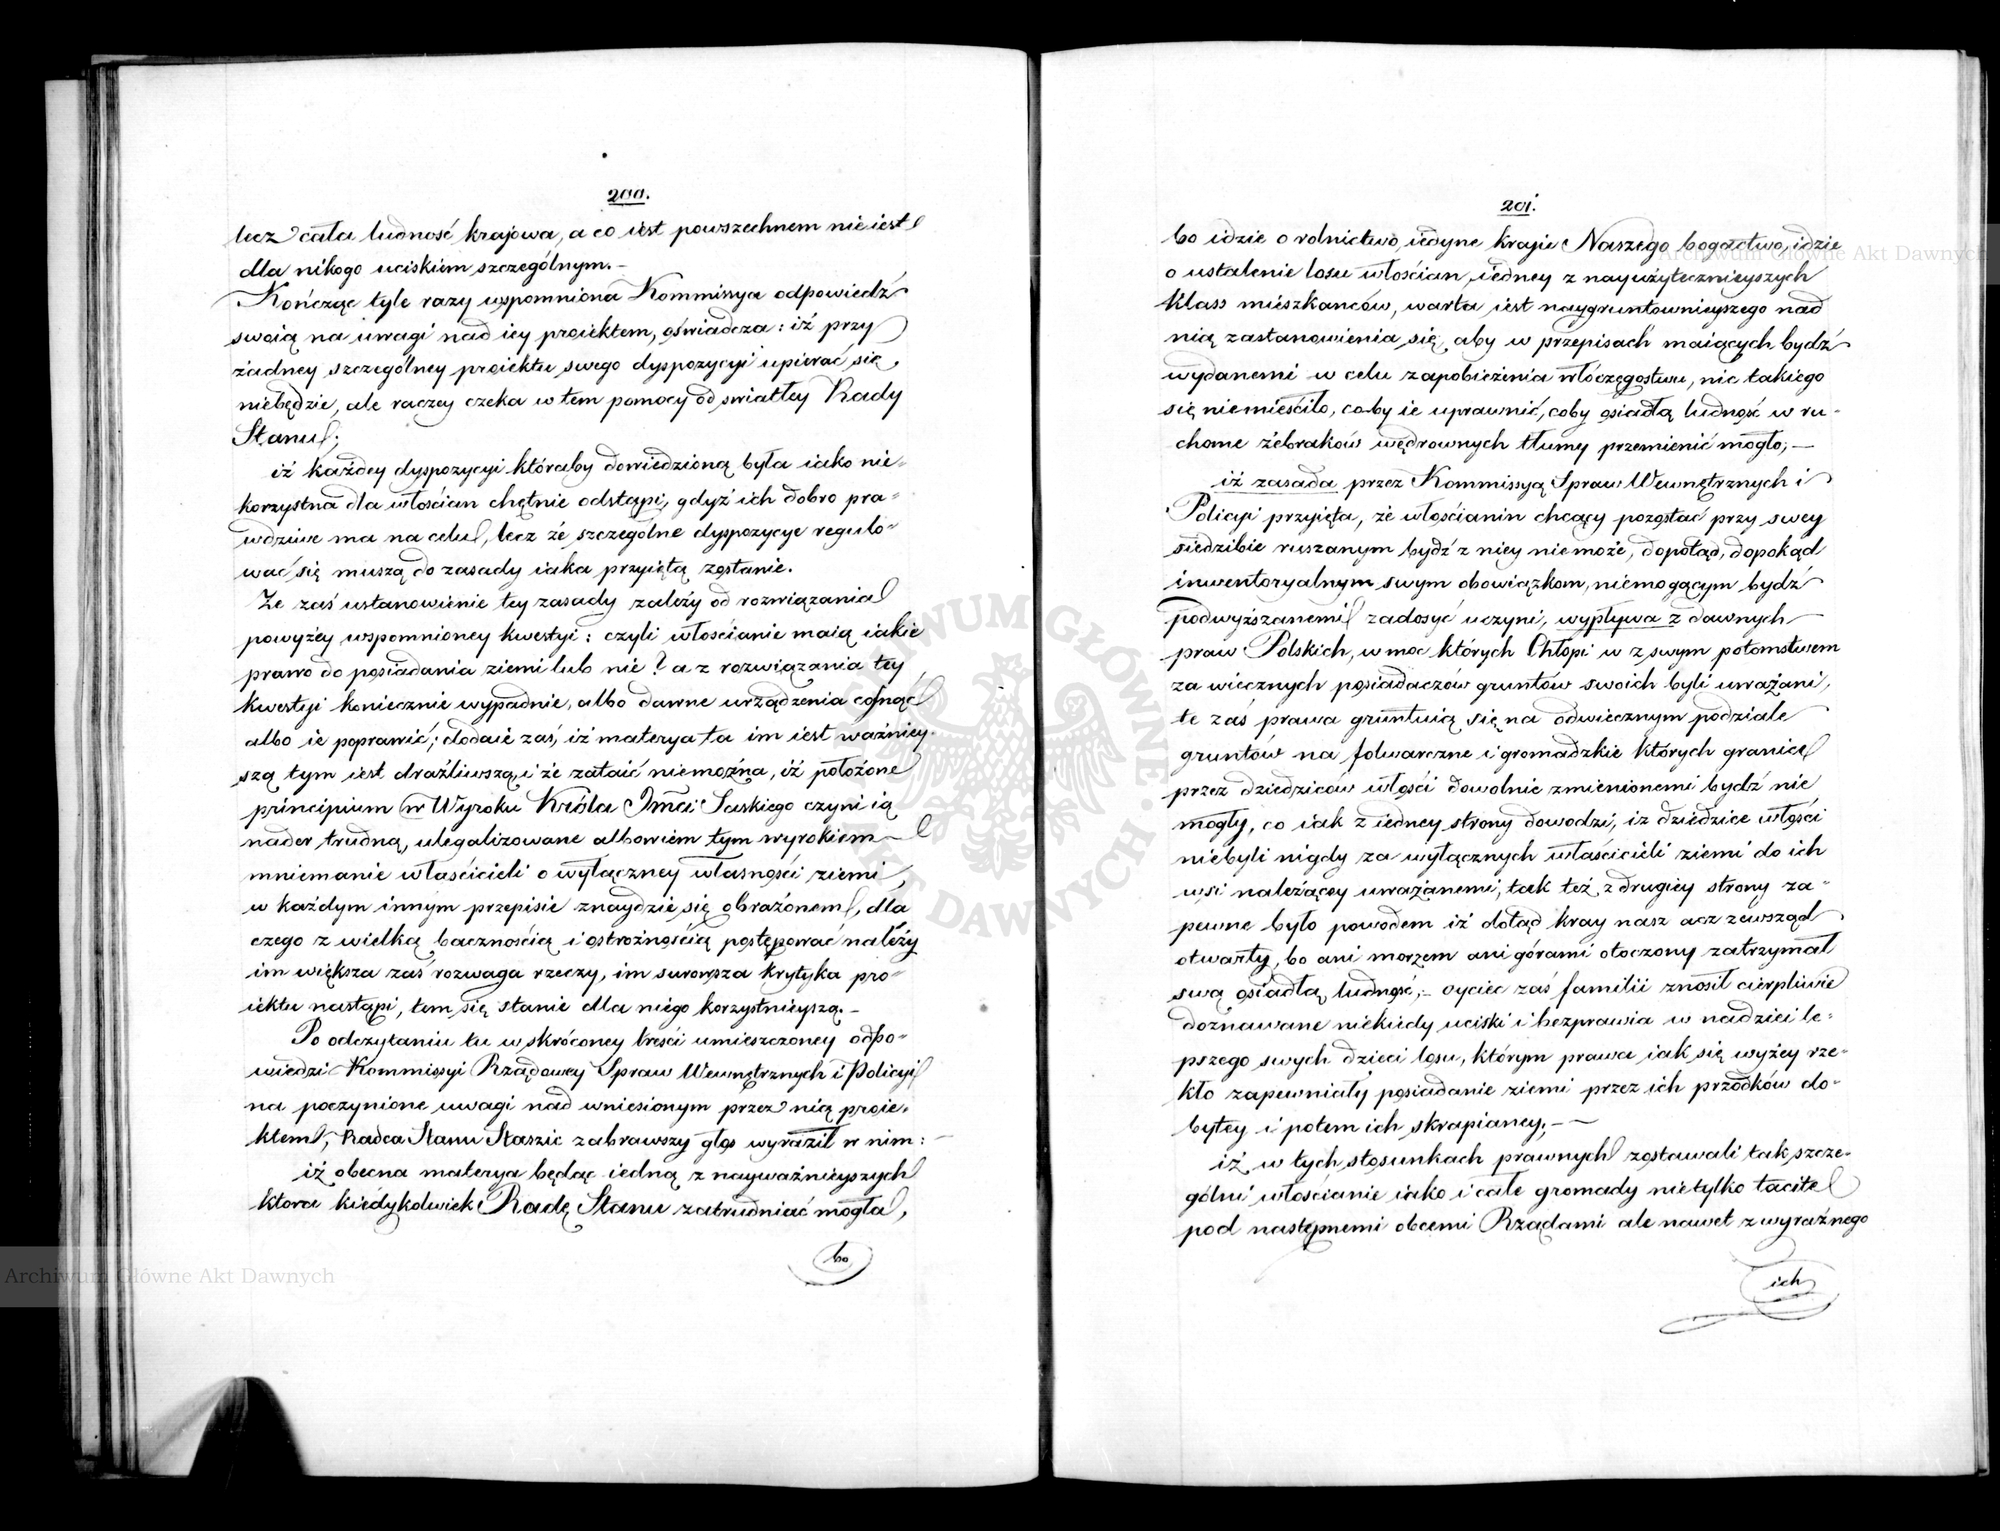 200.
lecz cała ludność krajowa, a co iest powszechnem nie iest
dla nikogo uciskiem szczególnym.—
Kończąc tyle razy wspomniona Kommissya odpowiedź
swoią na uwagi nad iey proiektem, oświadcza: iż przy
żadney szczególney proiektu swego dyspozycyi upierać się
niebędzie, ale raczey czeka w tem pomocy od światłey Rady
Stanu;
iż każdey dyspozycyi któraby dowiedzioną była iako nie-
korzystna dla włościan chętnie odstąpi, gdyż ich dobro pra-
wdziwe ma na celu, lecz że szczególne dyspozycye regulo-
wać się muszą do zasady iaka przyiętą zostanie.
Ze zaś ustanowienie tey zasady zależy od rozwiązania
powyżey wspomnioney kwestyi: czyli włościanie maią iakie
prawo do posiadania ziemi lub nie? a z rozwiązania tey
kwestyi koniecznie wypadnie, albo dawne urządzenia cofnąć
albo ie poprawić; dodaie zaś, iż materya ta im iest ważniey-
szą tym iest drażliwszą, i że zataić niemożna, iż położone
principium w Wyroku Króla Jmći Saskiego czyni ią
nader trudną, ulegalizowane albowiem tym wyrokiem—
mniemanie właścicieli o wyłączney własności ziemi,
w każdym innym przepisie znaydzie się obrażonem, dla
czego z wielką bacznością i ostrożnością postępować należy
im większa zaś rozwaga rzeczy, im surowsza krytyka pro-
iektu nastąpi, tem się stanie dla niego korzystnieyszą.—
Po odczytaniu tu w skróconey treści umieszczoney odpo-
wiedzi Kommissyi Rządowey Spraw Wewnętrznych i Policyi
na poczynione uwagi nad wniesionym przez nią proie-
ktem, Radca Stanu Staszic zabrawszy głos wyraził w nim:
iż obecna materya będąc iedną z nayważnieyszych
ktora kiedykolwiek Radę Stanu zatrudniać mogła,
bo
201.
bo idzie o rolnictwo, iedyne kraju Naszego bogactwo, idzie
o ustalenie losu włościan, iedney z nayużytecznieyszych
klass mieszkanców, warta iest naygruntownieyszego nad
nią zastanowienia się, aby w przepisach maiących bydź
wydanemi w celu zapobieżenia włóczęgostwu, nic takiego
się niemieściło, coby ie uprawnić, coby osiadłą ludność w ru-
chome żebraków wędrownych tłumy przemienić mogło;—
iż zasada przez Kommissyą Spraw Wewnętrznych i
Policyi przyięta, że włościanin chcący pozostać przy swey
siedzibie ruszanym bydź z niey niemoże, dopotąd, dopokąd
inwentoryalnym swym obowiązkom, niemogącym bydź
podwyższanemi zadosyć uczyni, wypływa z dawnych
praw Polskich, w moc których Chłopi w z swym potomstwem
za wiecznych posiadaczów gruntów swoich byli uważani,
te zaś prawa gruntuią się na odwiecznym podziale
gruntów na folwarczne i gromadzkie których granice
przez dziedziców włości dowolnie zmienionemi bydź nie
mogły, co iak z iedney strony dowodzi, iż dziedzice włości
niebyli nigdy za wyłącznych właścicieli ziemi do ich
wsi należącey uważanemi, tak też z drugiey strony za-
pewne było powodem iż dotąd kray nasz acz zewsząd
otwarty, bo ani morzem ani górami otoczony zatrzymał
swą osiadłą ludność,— oyciec zaś familii znosił cierpliwie
doznawane niekiedy uciski i bezprawia w nadziei le-
pszego swych dzieci losu, którym prawa iak się wyżey rze-
kło zapewniały posiadanie ziemi przez ich przodków do-
bytey i potem ich skrapianey;—
iż w tych stosunkach prawnych zostawali tak szcze-
gólni włościanie iako i całe gromady nietylko tacite
pod następnemi obcemi Rządami ale nawet z wyraźnego
ich
Archiwum Główne Akt Dawnych
Archiwum Główne Akt Dawnych
ARCHIWUM GŁÓWNE AKT DAWNYCH